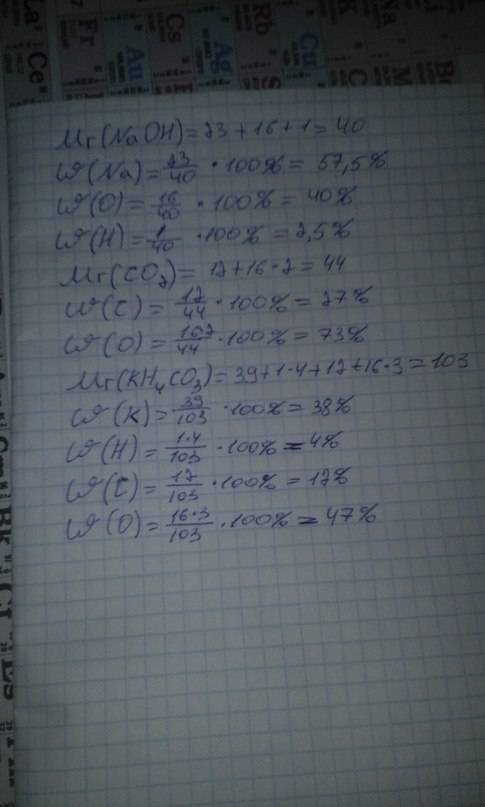 La Fr Cs Rb K Na
Ce Au Ag Cu
Mr(NaOH)=23+16+1=40
ω(Na)=23/40 · 100% = 57,5%
ω(O)=16/40 · 100% = 40%
ω(H)=1/40 · 100% = 2,5%
Mr(CO₂)= 12+16·2=44
ω(C)=12/44 · 100% = 27%
ω(O)=16·2/44 · 100% = 73%
Mr(KH₄CO₃)=39+1·4+12+16·3=103
ω(K)=39/103 · 100% = 38%
ω(H)=1·4/103 · 100% = 4%
ω(C)=12/103 · 100% = 12%
ω(O)=16·3/103 · 100% = 47%
Cm
Bk
Cf
Es